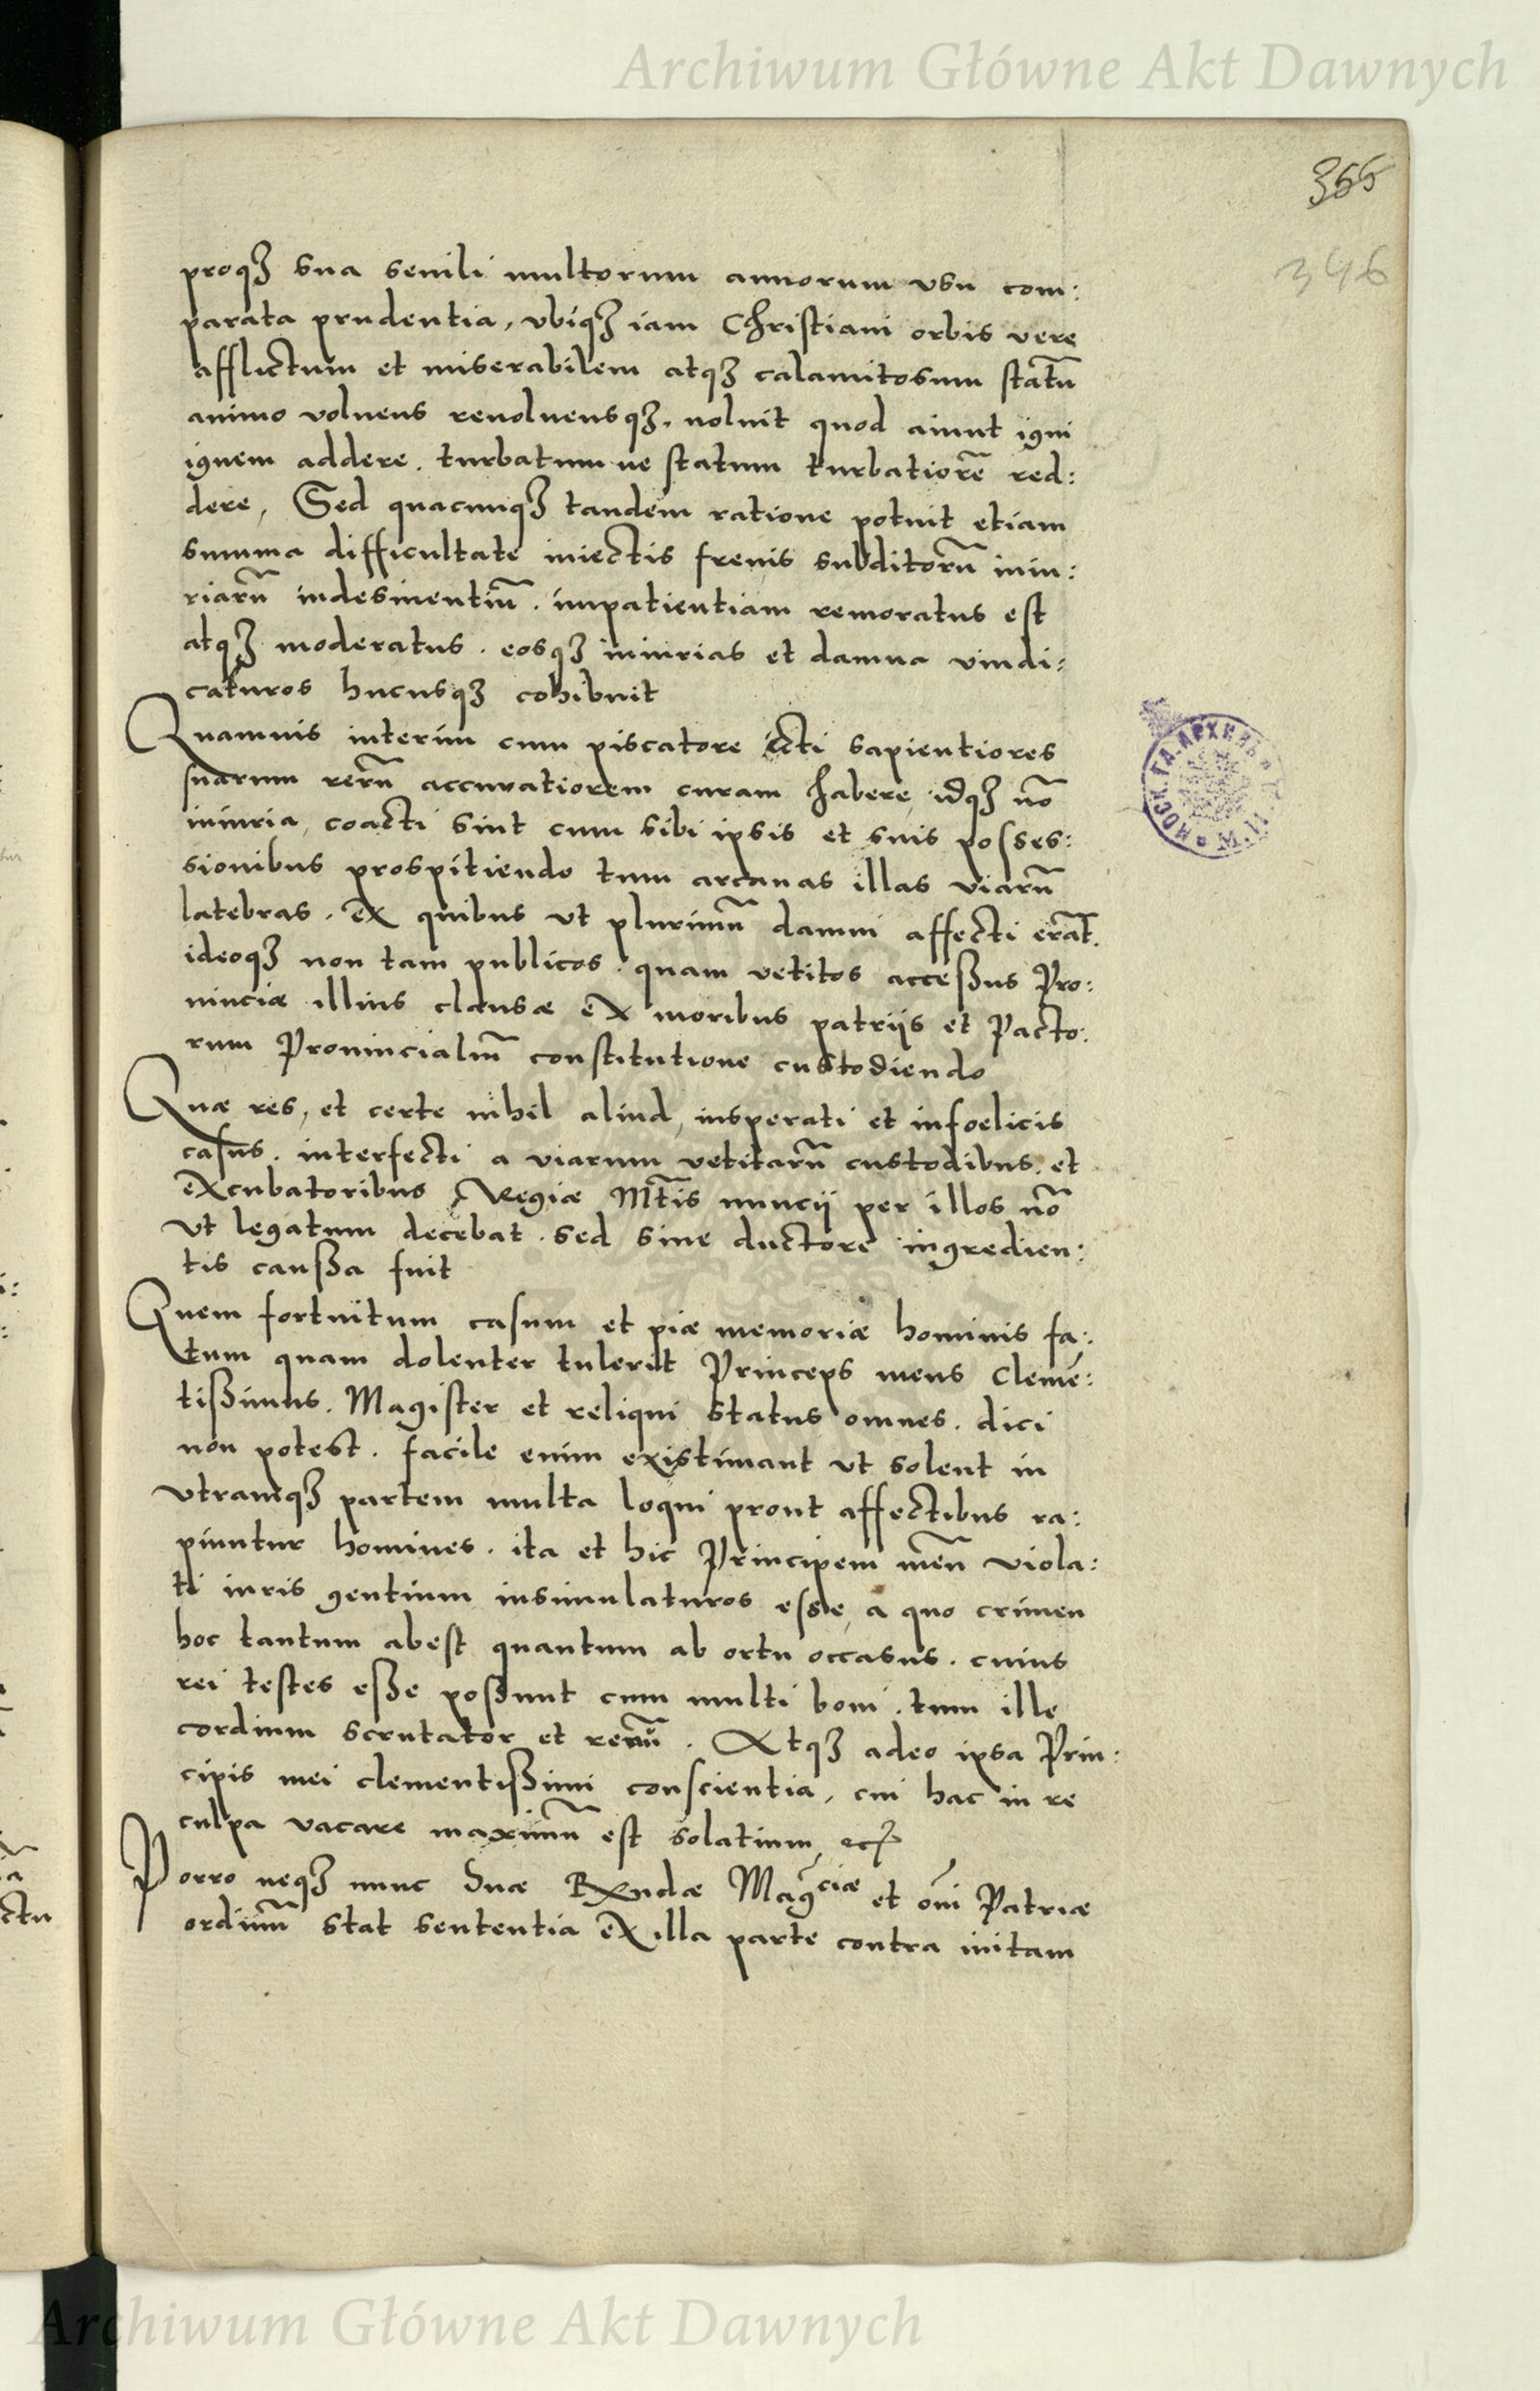 Archiwum Główne Akt Dawnych
355
346
proqꝫ sua senili multorum annorum vsu com:
parata prudentia, vbiqꝫ iam Christiani orbis vere
afflictum et miserabilem atqꝫ calamitosum statū
animo voluens reuoluensqꝫ. noluit quod aiunt igni
ignem addere. turbatum ve statum turbatiorē red:
dere, Sed quacunqꝫ tandem ratione potuit etiam
summa difficultate iniectis frenis subditorū iniu:
riarū indesinentiū. impatientiam remoratus est
atqꝫ moderatus. eosqꝫ iniurias et damna vindi:
caturos hucusqꝫ cohibuit
Quamuis interim cum piscatore icti sapientiores
suarum rerū accuratiorem curam habere, idqꝫ nō
iniuria, coacti sint cum sibi ipsis et suis posses:
sionibus prospitiendo tum arcanas illas viarū
latebras. ex quibus vt plurimū damni affecti erāt.
ideoqꝫ non tam publicos. quam vetitos accessus Pro:
uinciæ illius clausæ ex moribus patrijs et Pacto:
rum Prouincialiū constitutione custodiendo
Quæ res, et certe nihil aliud, insperati et infoelicis
casus. interfecti a viarum vetitarū custodibus. et
excubatoribus Regiæ Mtis nuncij per illos nō
vt legatum decebat. sed sine ductore ingredien:
tis caussa fuit
Quem fortuitum casum et piæ memoriæ hominis fa:
tum quam dolenter tulerit Princeps meus Clemē:
tissimus. Magister et reliqui status omnes. dici
non potest. facile enim existimant vt solent in
vtramqꝫ partem multa loqui prout affectibus ra:
piuntur homines. ita et hic Principem meū viola:
ti iuris gentium insimulaturos esse, a quo crimen
hoc tantum abest quantum ab ortu occasus. cuius
rei testes esse possunt cum multi boni. tum ille
cordium scrutator et renū. Atqꝫ adeo ipsa Prin:
cipis mei clementissimi conscientia, cui hac in re
culpa vacare maximū est solatium, etc
Porro neqꝫ nunc Suæ Rxndæ Magciæ et oīm Patriæ
ordinū stat sententia ex illa parte contra initam
Archiwum Główne Akt Dawnych